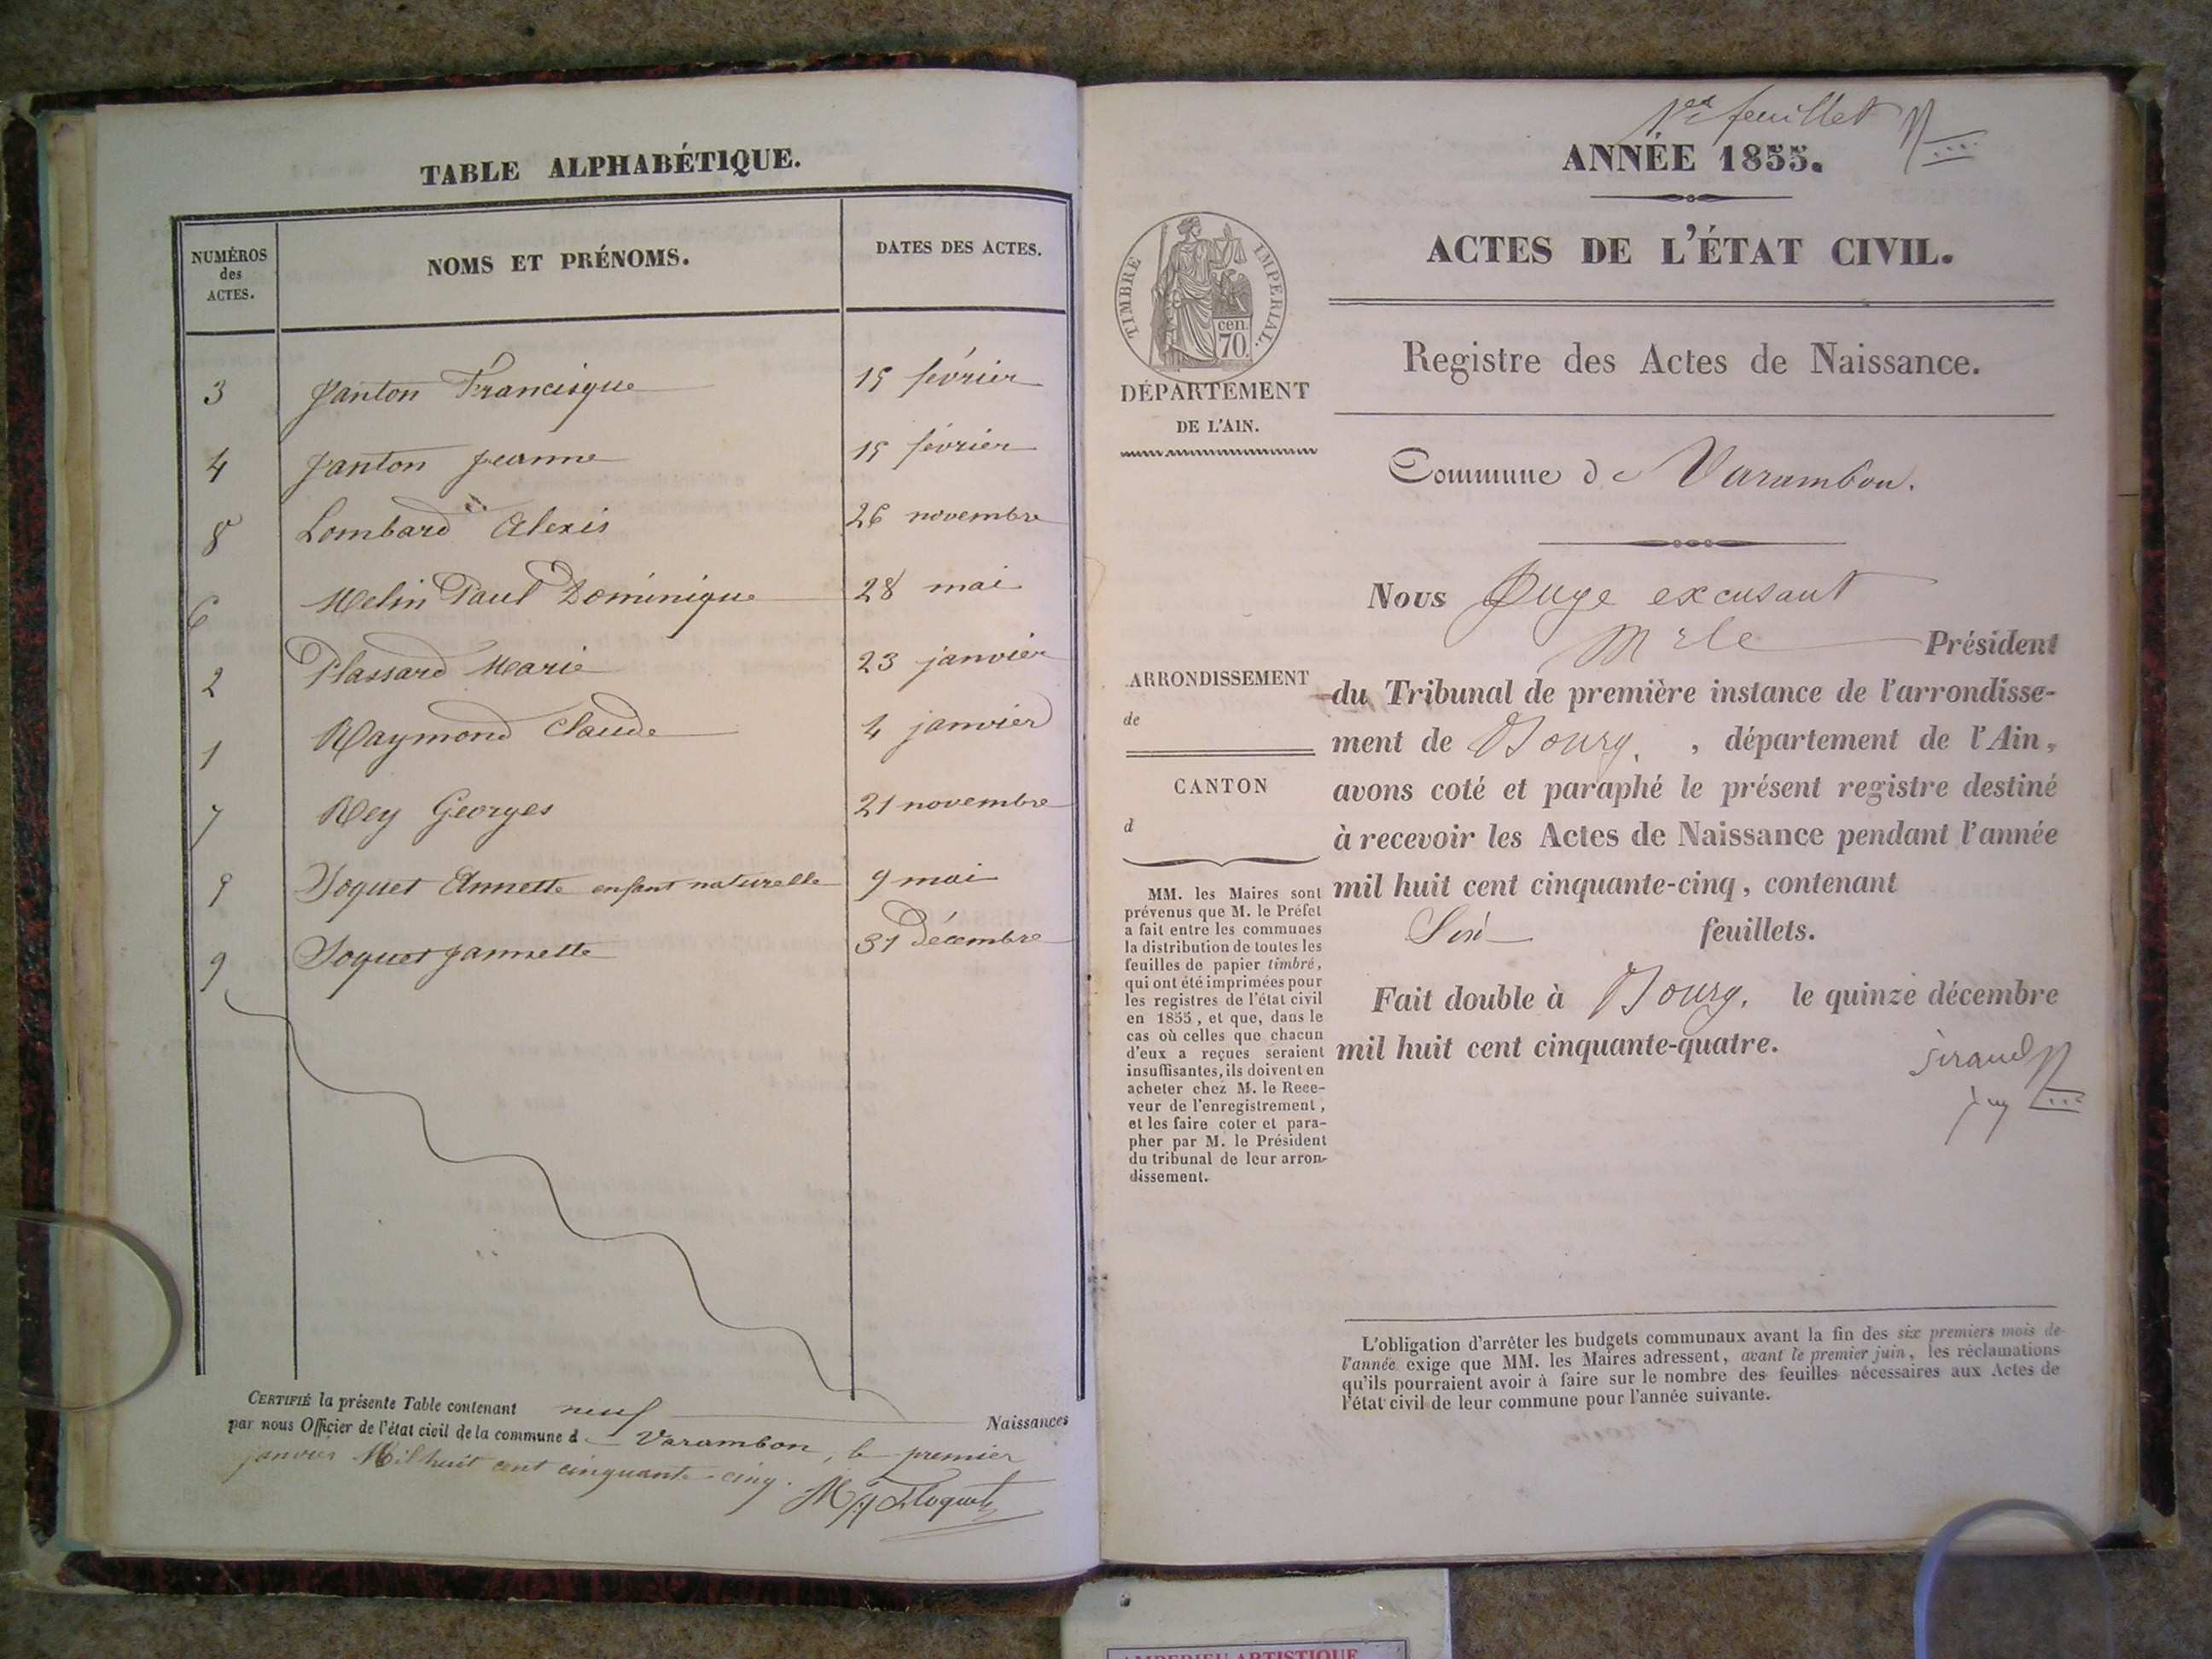 TABLE ALPHABÉTIQUE.
NUMÉROS des ACTES.
NOMS ET PRÉNOMS.
DATES DES ACTES.
3 Janton Francisque 15 février
4 Janton Jeanne 15 février
8 Lombard Alexis 26 novembre
6 Melin Paul Dominique 28 mai
2 Plassard Marie 23 janvier
1 Raymond Claude 4 janvier
7 Rey Georges 21 novembre
Annette enfant naturelle 9 mai
9 Jannette 31 Décembre
CERTIFIÉ la présente Table contenant neuf Naissances
par nous Officier de l'état civil de la commune d Varambon, le premier
janvier Mil huit cent cinquante-cinq.
1er feuillet
ANNÉE 1855.
ACTES DE L'ÉTAT CIVIL.
TIMBRE IMPÉRIAL.
cen.
70.
DÉPARTEMENT
DE L'AIN.
Registre des Actes de Naissance.
Commune de Varambon.
Nous Juge excusant
Mr le Président
ARRONDISSEMENT
de
CANTON
d
du Tribunal de première instance de l'arrondisse-
ment de Bourg, , département de l'Ain,
avons coté et paraphé le présent registre destiné
à recevoir les Actes de Naissance pendant l'année
mil huit cent cinquante-cinq, contenant
Six feuillets.
Fait double à Bourg, le quinze décembre
mil huit cent cinquante-quatre.
MM. les Maires sont
prévenus que M. le Préfet
a fait entre les communes
la distribution de toutes les
feuilles de papier timbré,
qui ont été imprimées pour
les registres de l'état civil
en 1855, et que, dans le
cas où celles que chacun
d'eux a reçues seraient
insuffisantes, ils doivent en
acheter chez M. le Rece-
veur de l'enregistrement,
et les faire coter et para-
pher par M. le Président
du tribunal de leur arron-
dissement.
L'obligation d'arrêter les budgets communaux avant la fin des six premiers mois de
l'année exige que MM. les Maires adressent, avant le premier juin, les réclamations
qu'ils pourraient avoir à faire sur le nombre des feuilles nécessaires aux Actes de
l'état civil de leur commune pour l'année suivante.